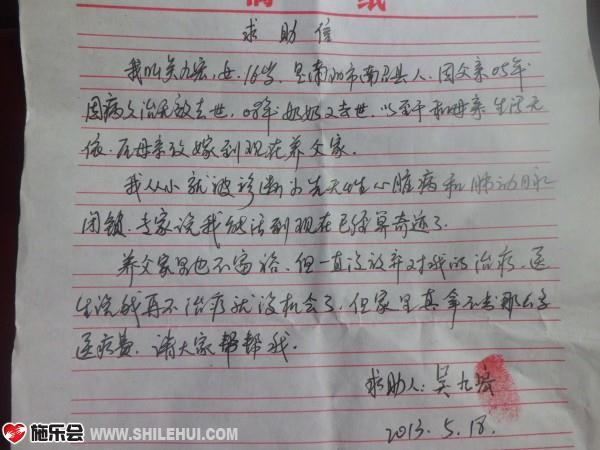 信 纸
求助信
我叫吴九宏,女,16岁,是南阳市南召县人,因父亲05年
因病久治无效去世,08年奶奶又去世,以至于和母亲生活无
依,后母亲改嫁到现在养父家。
我从小就被诊断为先天性心脏病和肺动脉
闭锁,专家说我能活到现在已经算奇迹了。
养父家里也不富裕,但一直没放弃对我的治疗,医
生说我再不治疗就没机会了,但家里真拿不出那么多
医疗费,请大家帮帮我。
求助人:吴九
2013.5.18.
施乐会 WWW.SHILEHUI.COM